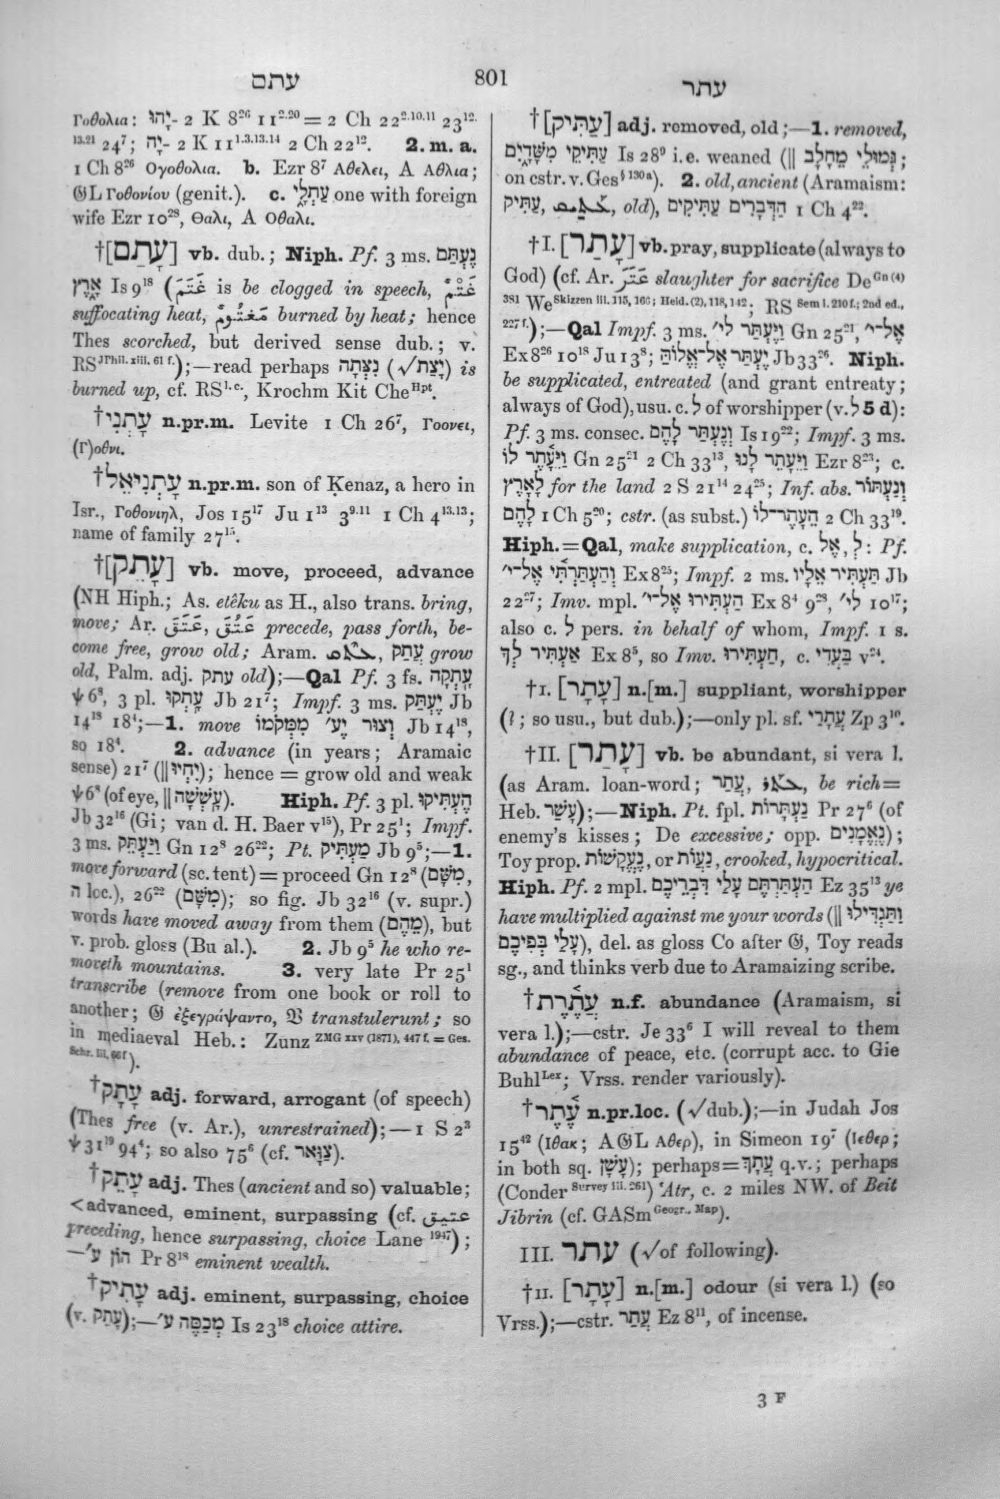 עתם
801
עתר
Γοθολια: יָהוּ- 2 K 8²⁶ 11²·²⁰ = 2 Ch 22²·¹⁰·¹¹ 23¹²·
¹³·²¹ 24⁷; יָה- 2 K 11¹·³·¹³·¹⁴ 2 Ch 22¹². 2. m. a.
1 Ch 8²⁶ Ογοθολια. b. Ezr 8⁷ Αθελει, A Αθλια;
𝔊L Γοθονίου (genit.). c. עֲתְלָ֑י one with foreign
wife Ezr 10²⁸, Θαλι, A Οθαλι.
†[עָתַם] vb. dub.; Niph. Pf. 3 ms. נֶעְתַּם
אָ֑רֶץ Is 9¹⁸ (غَتَمَ is be clogged in speech, غَتْمٌ
suffocating heat, مَغْتُومٌ burned by heat; hence
Thes scorched, but derived sense dub.; v.
RS JPhil. xiii. 61 f.);—read perhaps נִצְּתָה (√יָצַת) is
burned up, cf. RS l.c., Krochm Kit Che Hpt.
†עָתְנִי n.pr.m. Levite 1 Ch 26⁷, Γοονει,
(Γ)οθνι.
†עָתְנִיאֵל n.pr.m. son of Ḳenaz, a hero in
Isr., Γοθονιηλ, Jos 15¹⁷ Ju 1¹³ 3⁹·¹¹ 1 Ch 4¹³·¹³;
name of family 27¹⁵.
†[עָתֵק] vb. move, proceed, advance
(NH Hiph.; As. etêḳu as H., also trans. bring,
move; Ar. عَتَقَ, عَتُقَ precede, pass forth, be-
come free, grow old; Aram. ܥܬܩ, עֲתַק grow
old, Palm. adj. עתק old);—Qal Pf. 3 fs. עָֽתְקָה
ψ 6⁸, 3 pl. עָֽתְקוּ Jb 21⁷; Impf. 3 ms. יֶעְתַּק Jb
14¹⁸ 18⁴;—1. move וְצוּר יֶעְ׳ מִמְּקֹמוֹ Jb 14¹⁸,
so 18⁴. 2. advance (in years; Aramaic
sense) 21⁷ (‖ יִֽחְיוּ); hence = grow old and weak
ψ 6⁸ (of eye, ‖ עָֽשְׁשָׁה). Hiph. Pf. 3 pl. הֶעְתִּיקוּ
Jb 32¹⁶ (Gi; van d. H. Baer v¹⁵), Pr 25¹; Impf.
3 ms. וַיַּעְתֵּק Gn 12⁸ 26²²; Pt. מַעְתִּיק Jb 9⁵;—1.
move forward (sc. tent) = proceed Gn 12⁸ (מִשָּׁם,
ה loc.), 26²² (מִשָּׁם); so fig. Jb 32¹⁶ (v. supr.)
words have moved away from them (מֵהֶם), but
v. prob. gloss (Bu al.). 2. Jb 9⁵ he who re-
moveth mountains. 3. very late Pr 25¹
transcribe (remove from one book or roll to
another; 𝔊 ἐξεγράψαντο, 𝔙 transtulerunt; so
in mediaeval Heb.: Zunz ZMG xxv (1871), 447 f. = Ges.
Schr. iii, 66 f.).
†עָתָק adj. forward, arrogant (of speech)
(Thes free (v. Ar.), unrestrained);—1 S 2³
ψ 31¹⁹ 94⁴; so also 75⁶ (cf. צַוָּאר).
†עָתֵק adj. Thes (ancient and so) valuable;
<advanced, eminent, surpassing (cf. عتيق
preceding, hence surpassing, choice Lane ¹⁹⁴⁷);
הוֹן ע׳— Pr 8¹⁸ eminent wealth.
†עָתִיק adj. eminent, surpassing, choice
(v. עָתֵק);—מְכַסֶּה ע׳ Is 23¹⁸ choice attire.
†[עַתִּיק] adj. removed, old;—1. removed,
גְּמוּלֵי מֵחָלָב ‖) עַתִּיקֵי מִשָּׁדָ֑יִם Is 28⁹ i.e. weaned;
on cstr. v. Ges § 130 a). 2. old, ancient (Aramaism:
עַתִּיק, ܥܬܝܩ, old), הַדְּבָרִים עַתִּיקִים 1 Ch 4²².
†I. [עָתַר] vb. pray, supplicate (always to
God) (cf. Ar. عَتَرَ slaughter for sacrifice De Gn (4)
381 We Skizzen iii. 115, 166; Heid. (2), 118, 142; RS Sem i. 210 f.; 2nd ed.,
227 f.);—Qal Impf. 3 ms. וַיֶּעְתַּר לי׳ Gn 25²¹, אֶל־י׳
Ex 8²⁶ 10¹⁸ Ju 13⁸; יֶעְתַּר אֶל־אֱלוֹהַּ Jb 33²⁶. Niph.
be supplicated, entreated (and grant entreaty;
always of God), usu. c. לְ of worshipper (v. לְ 5 d):
Pf. 3 ms. consec. וְנֶעְתַּר לָהֶם Is 19²²; Impf. 3 ms.
וַיֵּעָ֫תֶר לוֹ Gn 25²¹ 2 Ch 33¹³, וַיֵּעָתֵר לָנוּ Ezr 8²³; c.
לָאָרֶץ for the land 2 S 21¹⁴ 24²⁵; Inf. abs. וְנַעְתּוֹר
לָהֶם 1 Ch 5²⁰; cstr. (as subst.) הֵעָתֶר־לוֹ 2 Ch 33¹⁹.
Hiph. = Qal, make supplication, c. לְ, אֶל: Pf.
וְהַעְתַּרְתִּי אֶל־י׳ Ex 8²⁵; Impf. 2 ms. תַּעְתִּיר אֵלָיו Jb
22²⁷; Imv. mpl. הַעְתִּירוּ אֶל־י׳ Ex 8⁴ 9²⁸, לי׳ 10¹⁷;
also c. לְ pers. in behalf of whom, Impf. 1 s.
אַעְתִּיר לְךָ Ex 8⁵, so Imv. הַעְתִּירוּ, c. בַּעֲדִי v²⁴.
†I. [עָתָר] n.[m.] suppliant, worshipper
(?; so usu., but dub.);—only pl. sf. עֲתָרַי Zp 3¹⁰.
†II. [עָתַר] vb. be abundant, si vera l.
(as Aram. loan-word; עֲתַר, ܥܬܪ, be rich =
Heb. עָשַׁר);—Niph. Pt. fpl. נַעְתָּרוֹת Pr 27⁶ (of
enemy's kisses; De excessive; opp. נֶאֱמָנִים);
Toy prop. נֶעֱקָשׁוֹת, or נַעֲוֹת, crooked, hypocritical.
Hiph. Pf. 2 mpl. הַעְתַּרְתֶּם עָלַי דִּבְרֵיכֶם Ez 35¹³ ye
have multiplied against me your words (‖ וַתַּגְדִּילוּ
עָלַי בְּפִיכֶם), del. as gloss Co after 𝔊, Toy reads
sg., and thinks verb due to Aramaizing scribe.
†עֲתֶ֫רֶת n.f. abundance (Aramaism, si
vera l.);—cstr. Je 33⁶ I will reveal to them
abundance of peace, etc. (corrupt acc. to Gie
Buhl Lex; Vrss. render variously).
†עֶ֫תֶר n.pr.loc. (√dub.);—in Judah Jos
15⁴² (Ιθακ; A𝔊L Αθερ), in Simeon 19⁷ (Ιεθερ;
in both sq. עָשָׁן); perhaps = עֲתָךְ q.v.; perhaps
(Conder Survey iii. 261) ʿAtr, c. 2 miles NW. of Beit
Jibrin (cf. GASm Geogr., Map).
III. עתר (√of following).
†II. [עָתָר] n.[m.] odour (si vera l.) (so
Vrss.);—cstr. עֲתַר Ez 8¹¹, of incense.
3 F